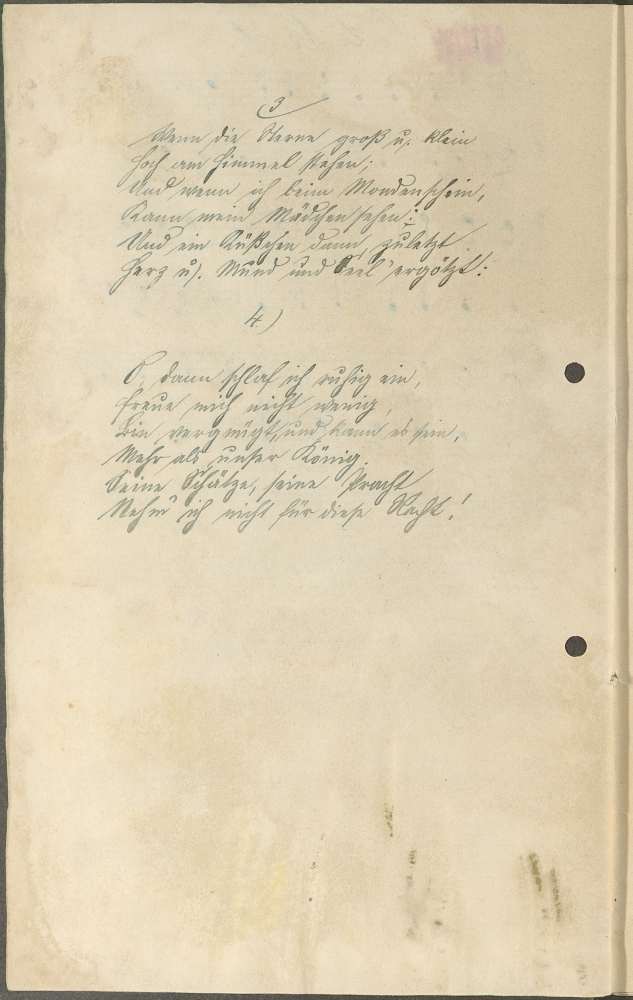 3
Wenn die Sterne groß u. klein
Hoch am Himmel stehen;
Und wenn ich beim Mondenschein,
Kann mein Mädchen sehen;
Und ein Küßchen dann, zuletzt
Herz u. Mund und Seel' ergötzt:
4)
O, dann schlaf ich ruhig ein,
Freue mich nicht wenig,
Bin vergnügt, und kann es sein,
Mehr als unser König.
Seine Schätze, seine Pracht
Nehm' ich nicht für diese Nacht!